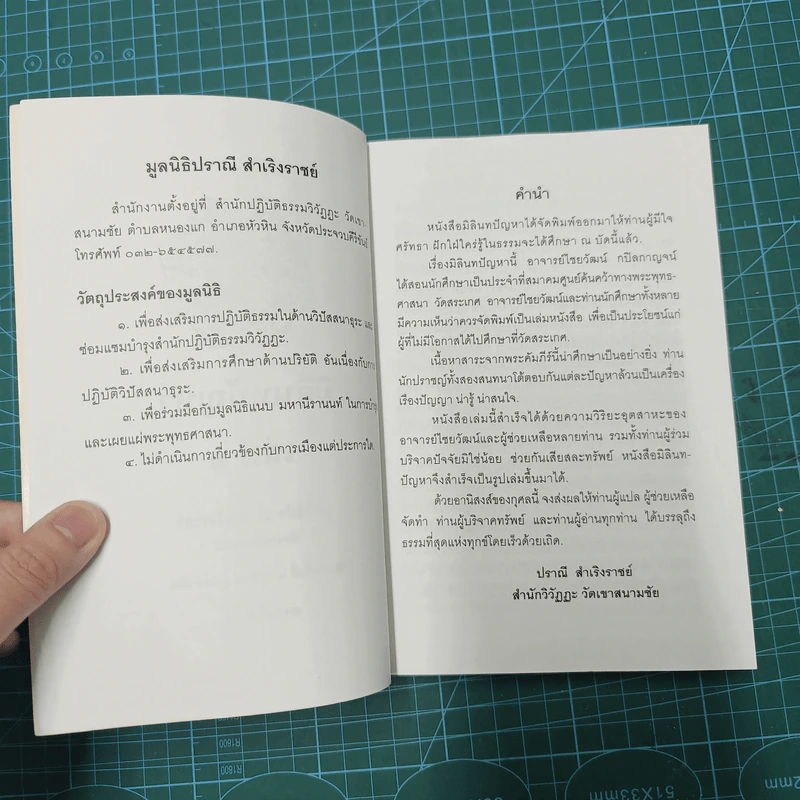 มูลนิธิปราณี สำเริงราชย์
สำนักงานตั้งอยู่ที่ สำนักปฏิบัติธรรมวิวัฏฏะ วัดเขา-
สนามชัย ตำบลหนองแก อำเภอหัวหิน จังหวัดประจวบคีรีขันธ์
โทรศัพท์ ๐๓๒-๖๕๔๕๗๗.
วัตถุประสงค์ของมูลนิธิ
๑. เพื่อส่งเสริมการปฏิบัติธรรมในด้านวิปัสสนาธุระ และ
ซ่อมแซมบำรุงสำนักปฏิบัติธรรมวิวัฏฏะ.
๒. เพื่อส่งเสริมการศึกษาด้านปริยัติ อันเนื่องกับการ
ปฏิบัติวิปัสสนาธุระ.
๓. เพื่อร่วมมือกับมูลนิธิแนบ มหานีรานนท์ ในการบำรุง
และเผยแผ่พระพุทธศาสนา.
๔. ไม่ดำเนินการเกี่ยวข้องกับการเมืองแต่ประการใด.
คำนำ
หนังสือมิลินทปัญหาได้จัดพิมพ์ออกมาให้ท่านผู้มีใจ
ศรัทธา ฝักใฝ่ใคร่รู้ในธรรมจะได้ศึกษา ณ บัดนี้แล้ว.
เรื่องมิลินทปัญหานี้ อาจารย์ไชยวัฒน์ กปิลกาญจน์
ได้สอนนักศึกษาเป็นประจำที่สมาคมศูนย์ค้นคว้าทางพระพุทธ-
ศาสนา วัดสระเกศ อาจารย์ไชยวัฒน์และท่านนักศึกษาทั้งหลาย
มีความเห็นว่าควรจัดพิมพ์เป็นเล่มหนังสือ เพื่อเป็นประโยชน์แก่
ผู้ที่ไม่มีโอกาสได้ไปศึกษาที่วัดสระเกศ.
เนื้อหาสาระจากพระคัมภีร์นี้น่าศึกษาเป็นอย่างยิ่ง ท่าน
นักปราชญ์ทั้งสองสนทนาโต้ตอบกันแต่ละปัญหาล้วนเป็นเครื่อง
เรืองปัญญา น่ารู้ น่าสนใจ.
หนังสือเล่มนี้สำเร็จได้ด้วยความวิริยะอุตสาหะของ
อาจารย์ไชยวัฒน์และผู้ช่วยเหลือหลายท่าน รวมทั้งท่านผู้ร่วม
บริจาคปัจจัยมิใช่น้อย ช่วยกันเสียสละทรัพย์ หนังสือมิลินท-
ปัญหาจึงสำเร็จเป็นรูปเล่มขึ้นมาได้.
ด้วยอานิสงส์ของกุศลนี้ จงส่งผลให้ท่านผู้แปล ผู้ช่วยเหลือ
จัดทำ ท่านผู้บริจาคทรัพย์ และท่านผู้อ่านทุกท่าน ได้บรรลุถึง
ธรรมที่สุดแห่งทุกข์โดยเร็วด้วยเถิด.
ปราณี สำเริงราชย์
สำนักวิวัฏฏะ วัดเขาสนามชัย
R1600
51X33mm